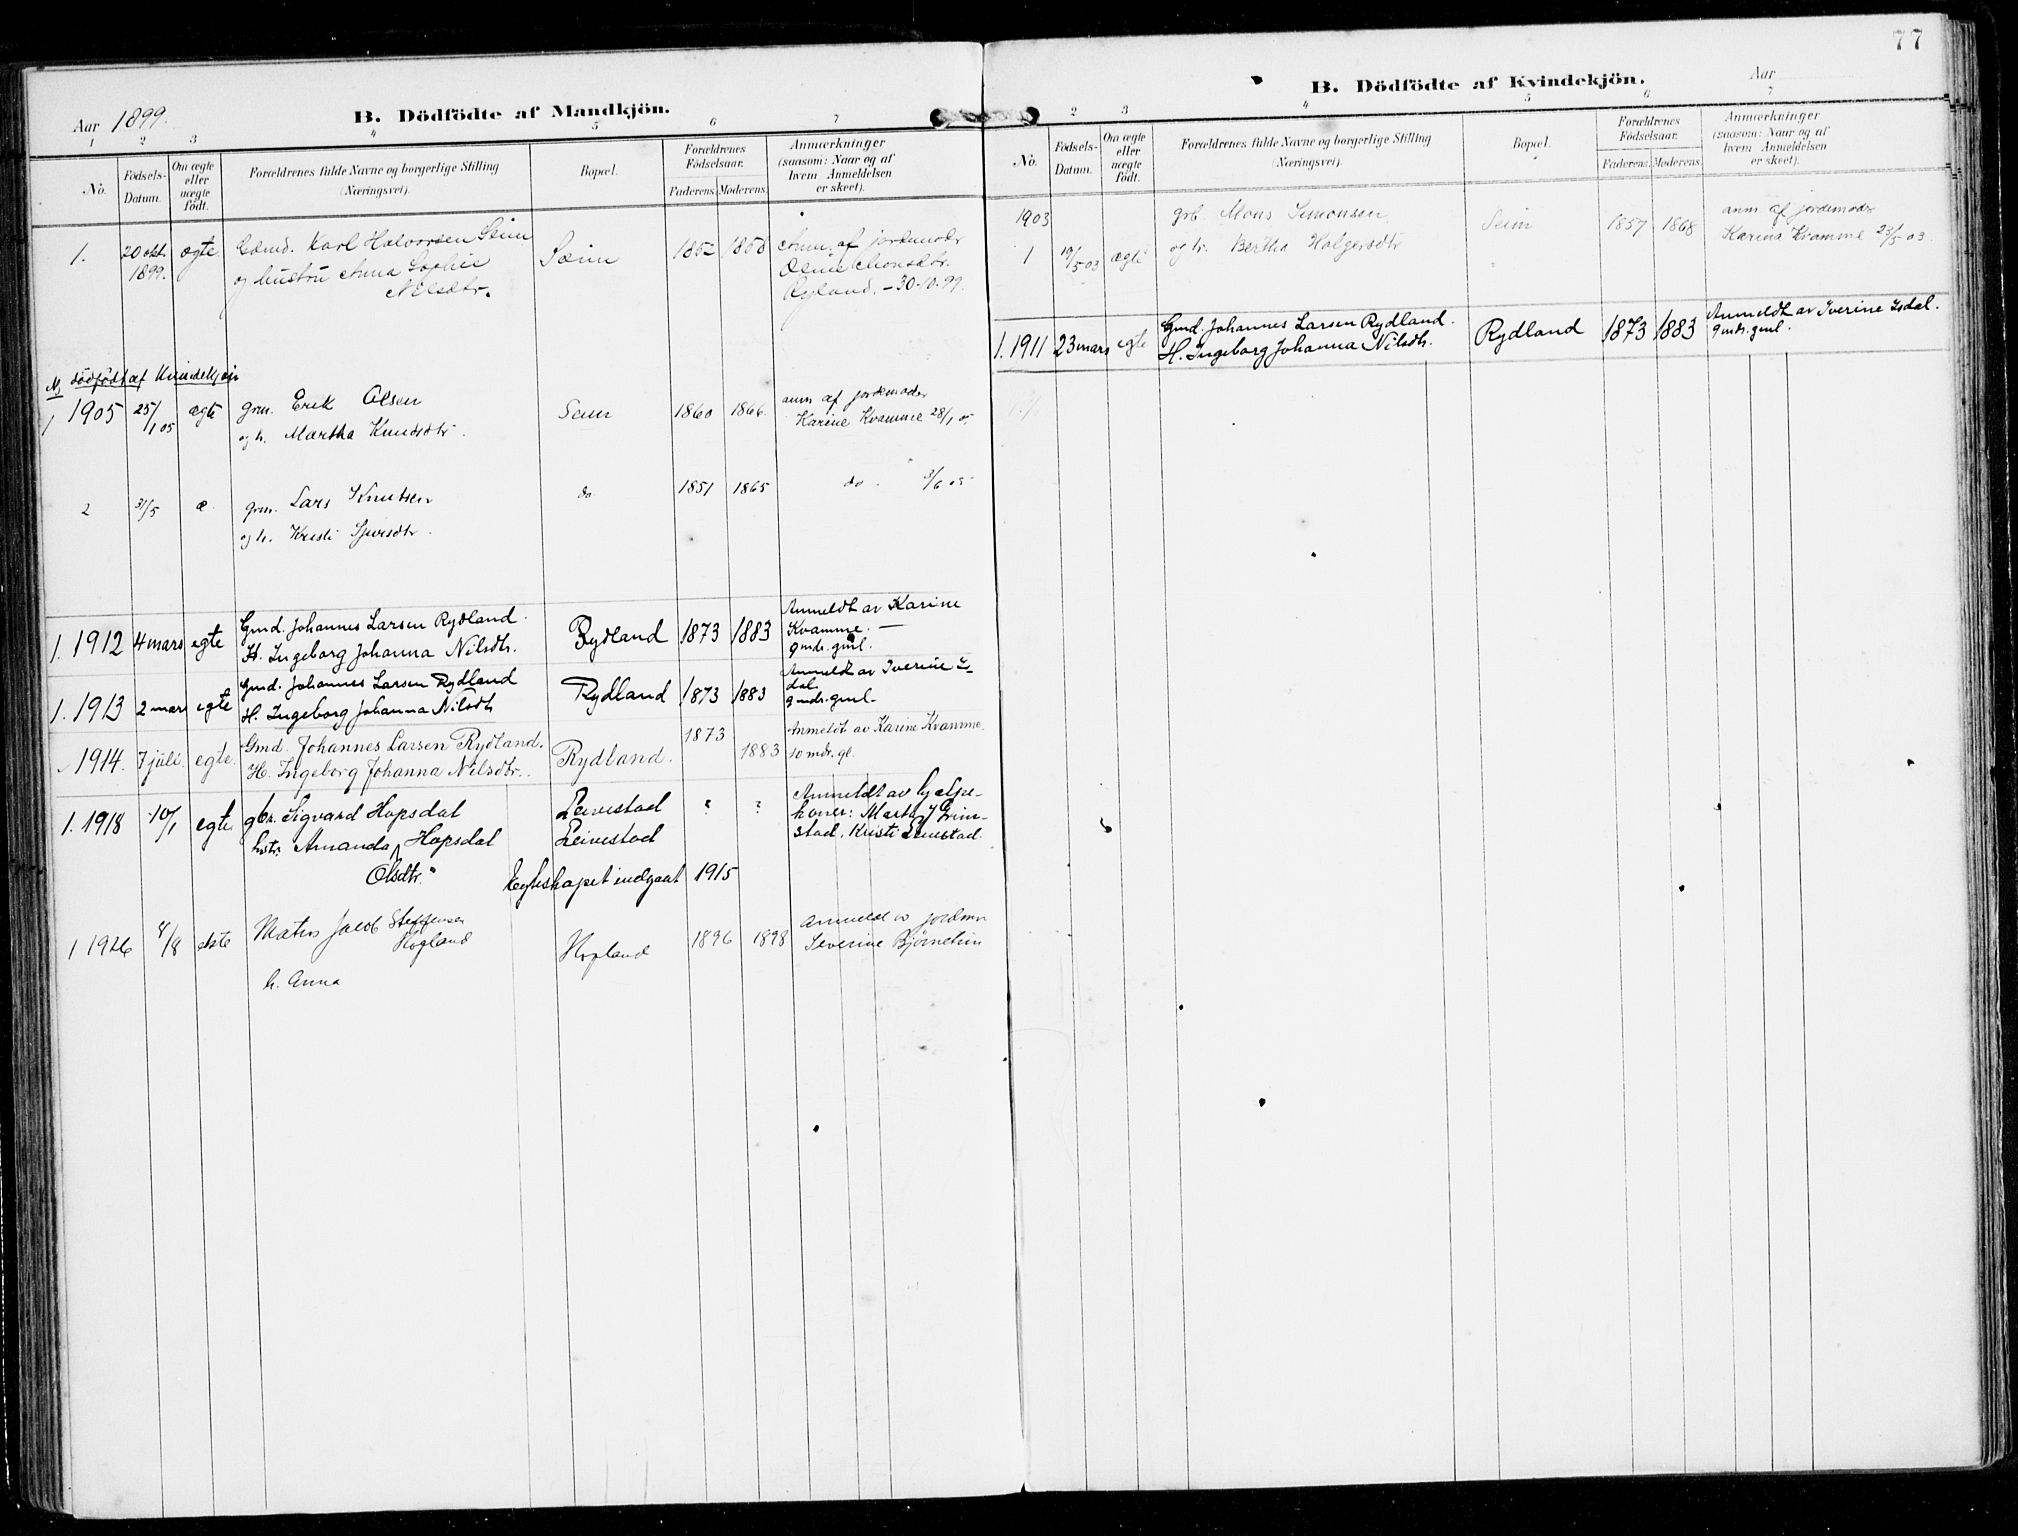 Aar 1899.
B. Dödfödte af Mandkjön.
1 2 3 4 5 6 7
No.
Födsels-Datum.
Om ægte eller uægte födt.
Forældrenes fulde Navne og borgerlige Stilling (Næringsvei).
Bopæl.
Forældrenes Födselsaar.
Faderens. Moderens.
Anmærkninger (saasom: Naar og af hvem Anmeldelsen er skeet).
1. 20 okt. ægte Gmd. Karl Halvorsen Seim Sæim 1852 1858 Anm. af jordemoder
1899. og hustru Anna Sophie
Nilsdtr. Ryland. - 30-10-99.
N. dödfödt af Kvindekjøn
1 1905 25/1 05 ægte grm. Erik Olsen Seim 1860 1866. anm af jordemoder
og h. Martha Knudsdtr. Karine Kvamme 28/1 05
2 31/5 æ. grm. Lars Knutsen do 1851 1865 do. 3/6 05
og h. Kristi Sjursdtr.
1. 1912 4 mars egte Gmd. Johannes Larsen Rydland. Rydland 1873 1883 Anmeldt av Karine
H. Ingeborg Johanna Nilsdtr. Kvamme. —
9 mdr. gml.
1. 1913 2 mars egte Gmd. Johannes Larsen Rydland Rydland 1873 1883 Anmeldt av Iverine Is-
H. Ingeborg Johanna Nilsdtr dal
9 mdr. gml.
1914. 7 juli. egte. Gmd. Johannes Larsen Rydland. Rydland. 1873 1883 Anmeldt av Karine Kvamme.
H. Ingeborg Johanna Nilsdtr. 10 mdr. gl.
1. 1918 10/1 egte gbr. Sigvard Hopsdal Leivestad ? ? Anmeldt av hjelpe-
hstr. Amanda Hopsdal Leivestad koner: Martha Grim-
Olsdtr. stad, Kristi Leivestad.
Egteskapet indgaat 1915
1 1926 8/8 ekte Matis Jacob Steffensen Hopland 1896 1898 Anmeldt av jordmor
Hogland Severine Bjørnehim
h. Anna
77
Aar
B. Dödfödte af Kvindekjön.
2 3 4 5 6 7
No.
Födsels-Datum.
Om ægte eller uægte födt.
Forældrenes fulde Navne og borgerlige Stilling (Næringsvei).
Bopæl.
Forældrenes Födselsaar.
Faderens. Moderens.
Anmærkninger (saasom: Naar og af hvem Anmeldelsen er skeet).
1903 grb. Mons Simonsen Seim 1857 1868 anm. af jordemoder
1 19/5 03 ægte og h. Bertha Holgersdtr Karina Kvamme 23/5 03.
1. 1911 23 mars egte Gmd. Johannes Larsen Rydland. Rydland 1873 1883 Anmeldt av Iverine Isdal.
H. Ingeborg Johanna Nilsdtr. 9 mdr. gml.